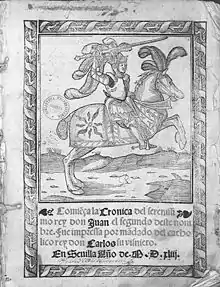 Comiēça la Cronica del sereniſſi
mo rey don Juan el segundo deste nom
bre. Fue impressa por mādado del catho
lico rey don Carlos su visnieto.
En Sevilla Año de M. D. xliij.